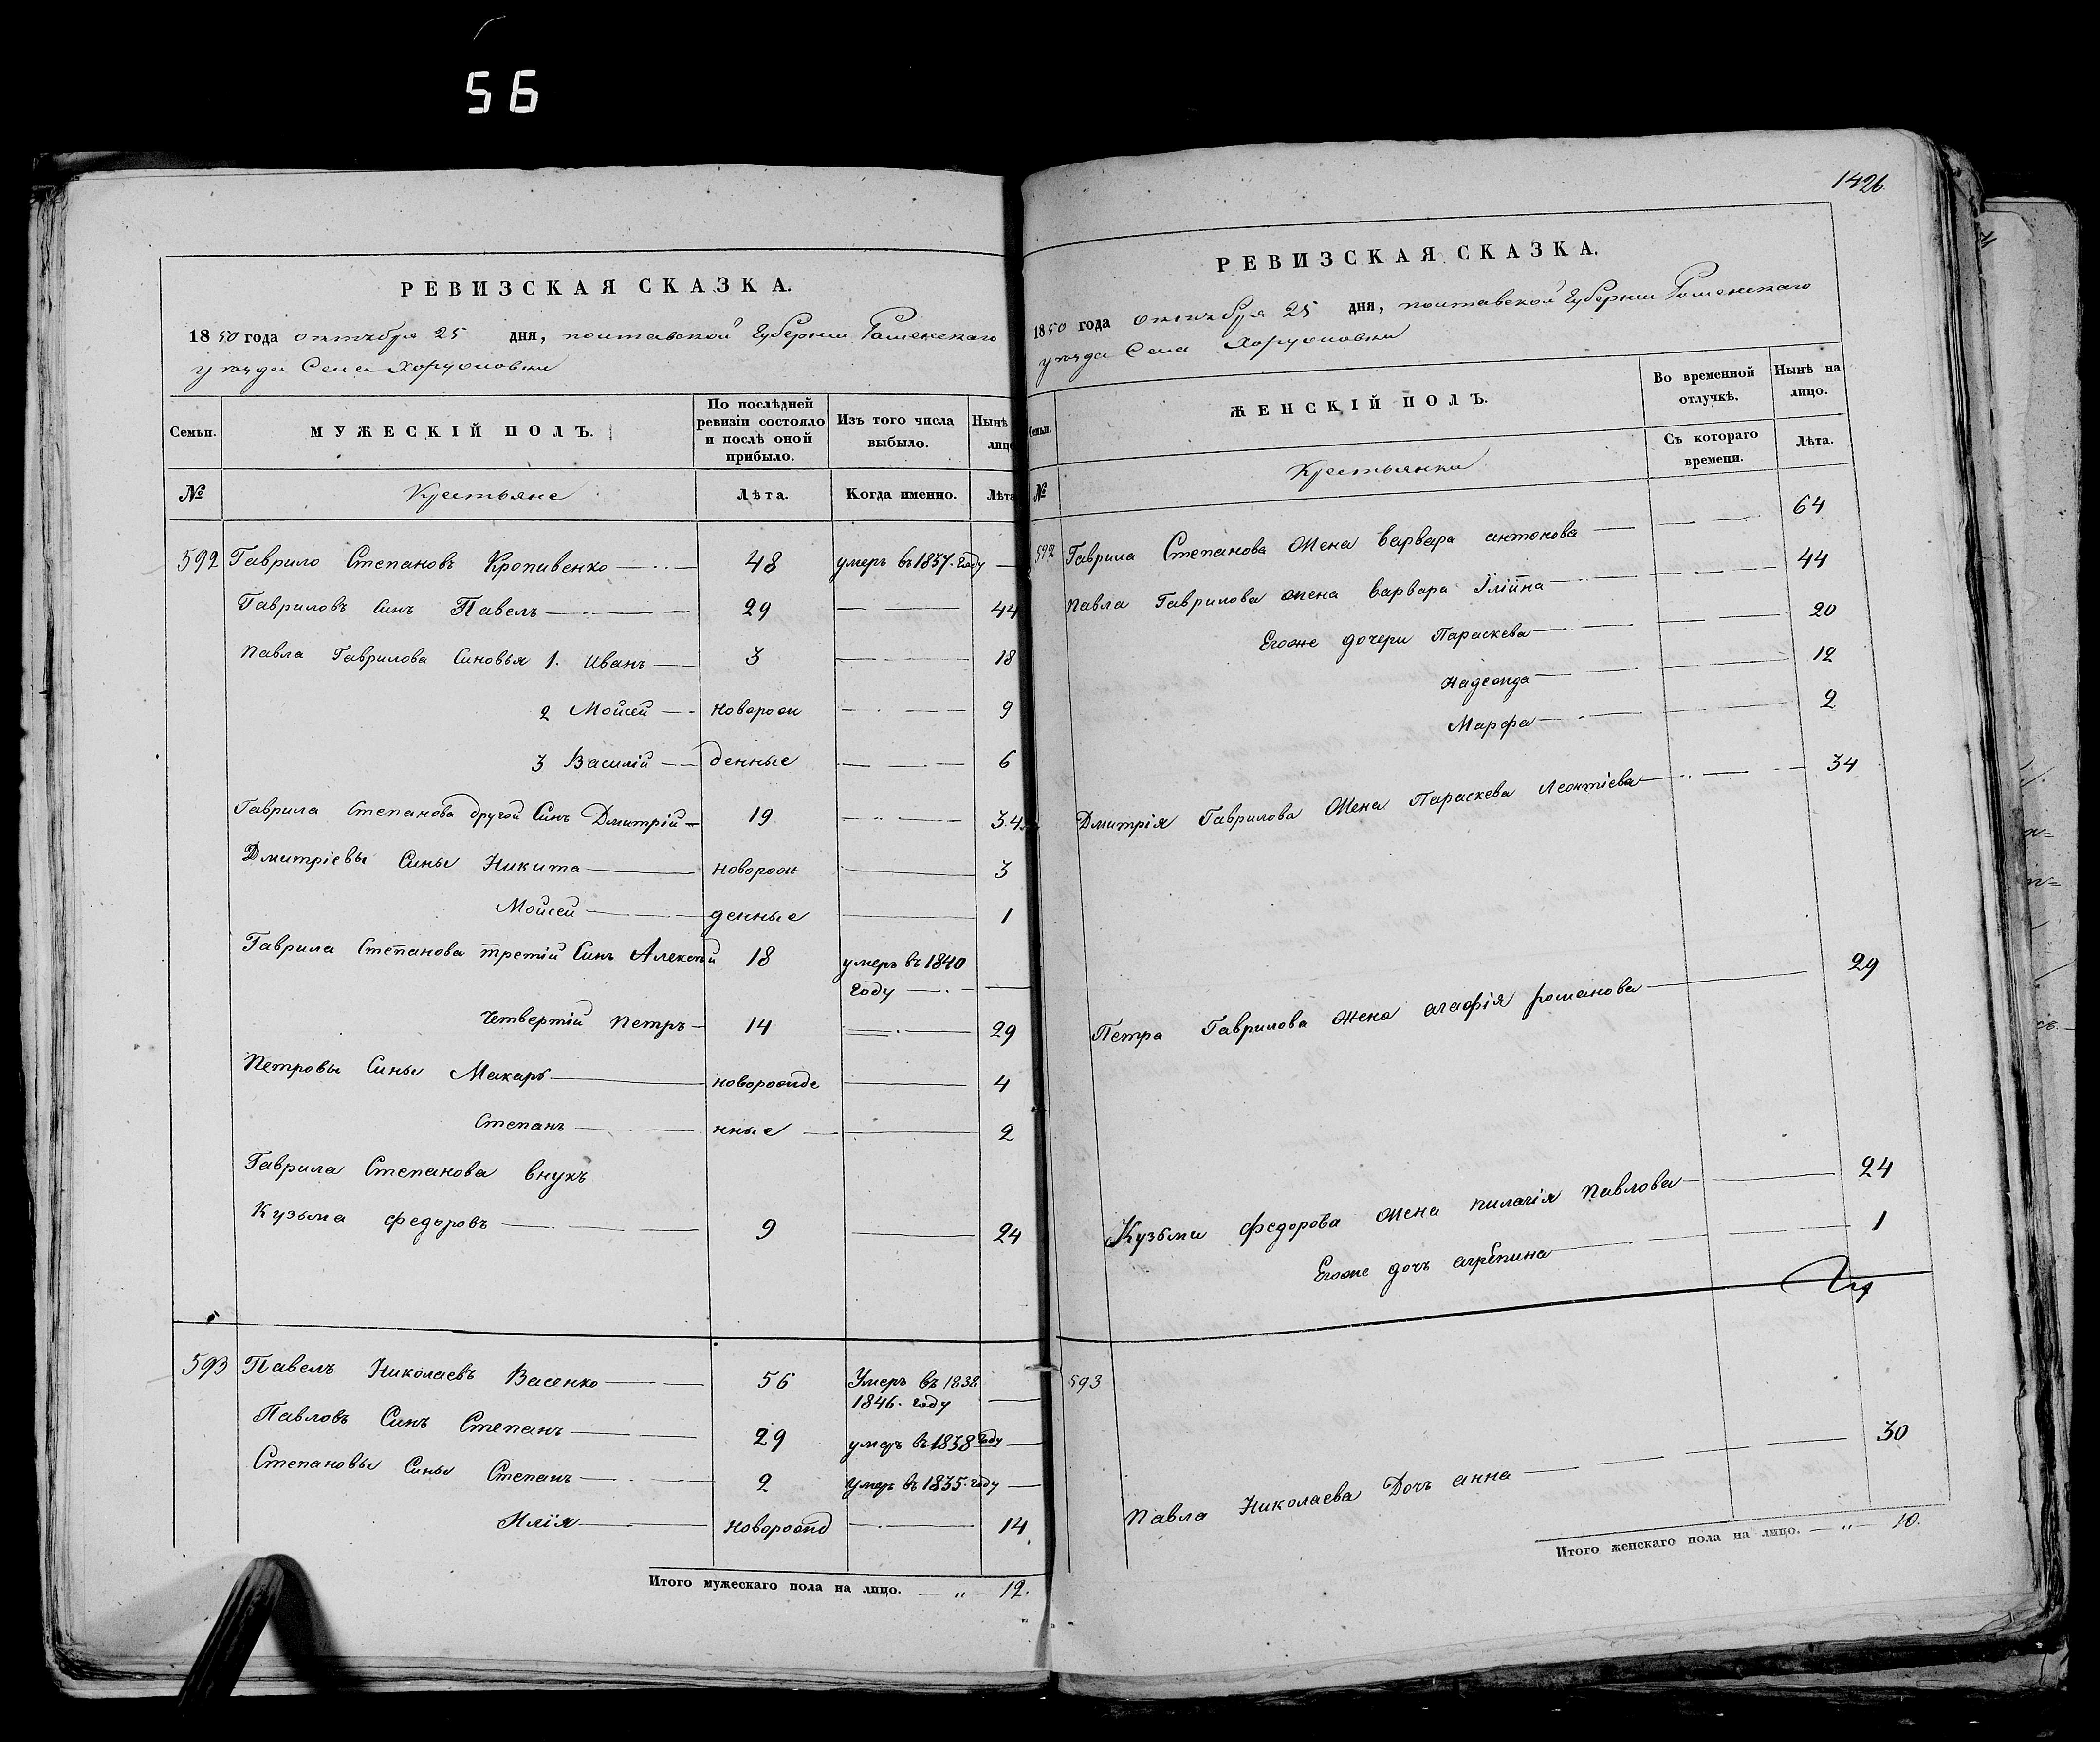 56
РЕВИЗСКАЯ СКАЗКА.
1850 года октября 25 дня, полтавской Губернии Роменскаго
уезда Села Хоружовки
Семьи. МУЖЕСКІЙ ПОЛЪ. По послѣдней ревизіи состояло и послѣ оной прибыло. Изъ того числа выбыло. Нынѣ лицо
№ Крестьяне Лѣта. Когда именно. Лѣта
592 Гаврило Степановъ Кропивенко 48 умеръ въ 1837. году
Гавриловъ Синъ Павелъ 29 44
Павла Гаврилова Синовья 1. Иванъ 3 18
2 Мойсей новорож 9
3 Василій денные 6
Гаврила Степанова другой Синъ Дмитрій 19 34
Дмитріевы Сины Никита новорож 3
Мойсей денные 1
Гаврила Степанова третій Синъ Алексѣй 18 умеръ въ 1840
году
Четвертій Петръ 14 29
Петровы Сины Макаръ новорожде 4
Степанъ нные 2
Гаврила Степанова внукъ
Кузьма федоровъ 9 24
593 Павелъ Николаевъ Васенко 56 Умеръ въ 1838
1846. году
Павловъ Синъ Степанъ 29 умеръ въ 1838 году
Степановы Сины Степанъ 2 умеръ въ 1835. году
Илія новорожд 14
Итого мужескаго пола на лицо. — „ — 12.
1426
РЕВИЗСКАЯ СКАЗКА.
1850 года октября 25 дня, полтавской Губернии Роменскаго
уезда Села Хоружовки
Семьи. ЖЕНСКІЙ ПОЛЪ. Во временной отлучкѣ. Нынѣ на лицо.
№ Крестьянки Съ котораго времени. Лѣта.
592 Гаврила Степанова жена варвара антонова 64
Павла Гаврилова жена варвара Ілііна 44
Егоже дочери Параскева 20
Надежда 12
Марфа 2
Дмитрія Гаврилова жена Параскева Леонтіева 34
Петра Гаврилова жена агафія романова 29
Кузьми федорова жена пилагія павлова 24
Егоже дочъ агрепина 1
593
Павла Николаева Дочъ анна 30
Итого женскаго пола на лицо. — „ — 10.